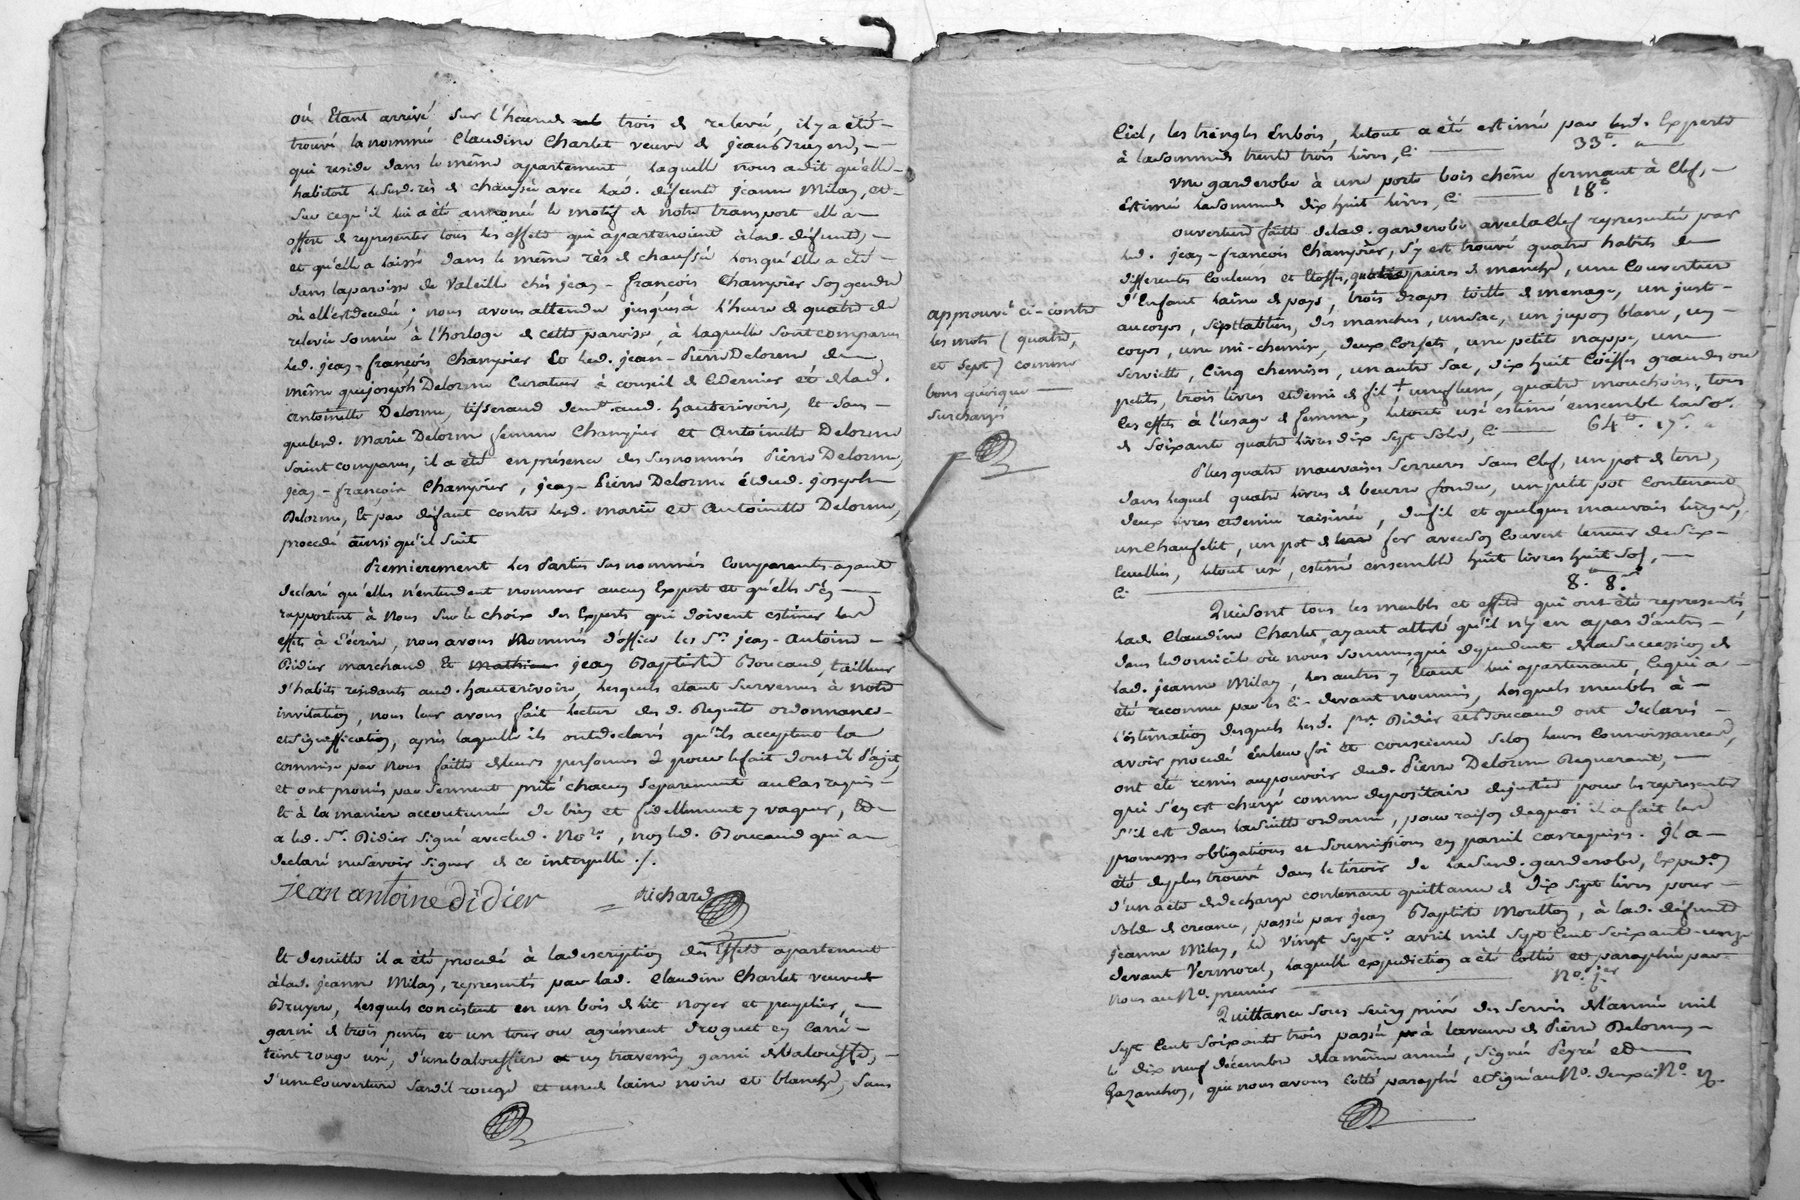 où Etant arrivé sur l'heure de trois de relevée, il y a été
trouvé la nommée Claudine Charlet veuve de jean Bruyere,
qui reside dans le même apartement laquelle nous a dit qu'elle
habitoit led. rès de chaussée avec lad. défunte jeanne Milan, et
sur cequ'il lui a été annoncé le motif de notre transport ell a
offert de representer tous les effets qui apartenoient à lad. défunte,
et qu'elle a laissé dans le même rès de chaussée lorsqu'elle a été
dans la paroisse de Valeille chés jean-françois Champier son gendre
où ell'est decedée; nous avons attendu jusqu'à l'heure de quatre de
relevée sonnée à l'horloge de cette paroisse, à laquelle sont comparus
led. jean-françois Champier Et led. jean-Pierre Delorme de
même que joseph Delorme Curateur à conseil de cedernier et delad.
antoinette Delorme, tisserand dem.t aud. hauterivoire, Et sans
que lesd. Marie Delorme femme Champier et Antoinette Delorme
soient comparues, il a été en présence des susnommés Pierre Delorme,
jean-françois Champier, jean-Pierre Delorme et dud. joseph
Delorme, Et par défaut contre lesd. marie et Antoinette Delorme,
procedé ainsi qu'il suit
Premierement les Parties susnommées Comparantes ayant
declaré qu'elles n'entendent nommer aucun Expert et qu'elles s'en
rapportent à nous sur le choix des Experts qui doivent estimer les
effets à décrire, nous avons Nommés d'office les Srs. jean-Antoine
Didier marchand Et Mathieu jean Baptiste Boucaud, tailleur
d'habits residants aud. hauterivoire, lesquels etant survenus à notre
invitation, nous leur avons fait lecture des d. Requete ordonnance
et signiffication, après laquelle ils ont declarés qu'ils acceptent la
commise par nous faitte de leurs personnes pour le fait dont il s'agit,
et ont promis par serment prêté chacun separement au cas requis
Et à la maniere accoutumée de bien et fidellement y vaquer, Et
a led. Sr. Didier signé avec led. No.re, non led. Boucaud qui a
declaré ne savoir signer de ce interpellé ./.
jean antoine didier Richard
Et desuitte il a été procedé à la description des Effets apartenant
à lad. jeanne Milan, representés par lad. Claudine Charlet veuve de
Bruyere, lesquels concistent en un bois de lit noyer et peuplier,
garni de trois pentes et un tour ou agrément droguet en carré
teint rouge usé, d'une baloussiere et un traversin garni de balousse,
d'une Couverture sardil rouge et une de laine noire et blanche, sans
approuvé ci-contre
les mots (quatre,
et sept) comme
bons quoique
surchargé
Ciel, les tringles en bois, letout a été estimé par lesd. Experts
à la somme de trente trois livres, Ci 33.
Une garderobe à une porte bois chêne fermant à Clef,
Estimée la somme de dix huit livres, Ci 18.
ouverture faitte de lad. garderobe avec la Clef representée par
led. jean-françois Champier, s'y est trouvé quatre habits de
differents Couleurs et Etoffes, quatre paires de manche, une Couverture
d'Enfant laine de pays, trois draps toille de menage, un just-
aucorps, sept tabliers, des manches, un sac, un jupon blanc, un
corps, une mi-chemise, deux Corsets, une petite nappe, une
serviette, Cinq chemises, un autre sac, dix huit Coëffes grandes ou
petits, trois livres et demie de fil + , quatre mouchoirs, tous
les effets à l'usage de femme, letout usé estimé ensemble la so.
de soixante quatre livres dix sept sols, Ci 64. 17.
Plus quatre mauvaises serrures sans Clef, un pot de terre,
dans lequel quatre livres de beurre fondu, un petit pot contenant
deux livres et demie raisinée, du fil et quelques mauvais linges,
un Chaufelit, un pot de fer avec son Couvert teneur de six
Ceuilliés, letout usé, estimé ensemble huit livres huit sols,
Ci 8. 8.
Qui sont tous les meubles et effets qui ont été representés,
lad. Claudine Charlet ayant attesté qu'il n'y en a pas d'autres
dans le domicile où nous sommes, qui dependent de la succession de
lad. jeanne Milan, les autres y étant lui apartenant, ce qui a
été reconnu par les ci-devant nommés, lesquels meubles à
l'estimation desquels lesd. Srs. Didier et Boucaud ont declarés
avoir procedé en leur foi et conscience selon leurs Connoissances,
ont été remis au pouvoir dud. Pierre Delorme Requerant,
qui s'en est chargé comme depositaire de justice pour les representer
s'il est dans la suitte ordonné, pour raison dequoi il a fait les
promesses obligations et soumissions en pareil cas requises. Il a
été de plus trouvé dans le tiroir de la susd. garderobe, Exped.on
d'un acte de decharge contenant quittance de dix sept livres pour
solde de creance, passée par jean Baptiste Moulton, à lad. défunte
jeanne Milan, le vingt sept. avril mil sept cent soixante-onze
devant Vermorel, laquelle expedition a été cottée et paraphée par
nous au No. premier No. 1er
Quittance sous seing privé des servis de l'année mil
sept cent soixante trois passée à la veuve de Pierre Delorme
le dix neuf décembre de la même année, signée Peyré et
Gazanchon, que nous avons cotté paraphé et signé au No. deux ci No. 2.